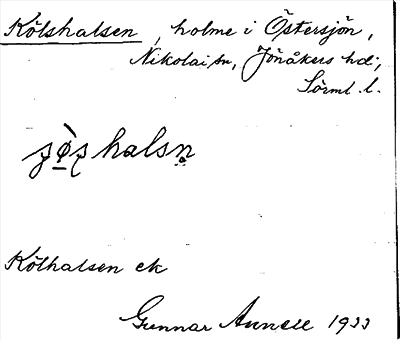 Kölshalsen, holme i Östersjön,
Nikolai sn, Jönåkers hd;
Sörml. l.
Kölhalsen ek
Gunnar Annell 1933